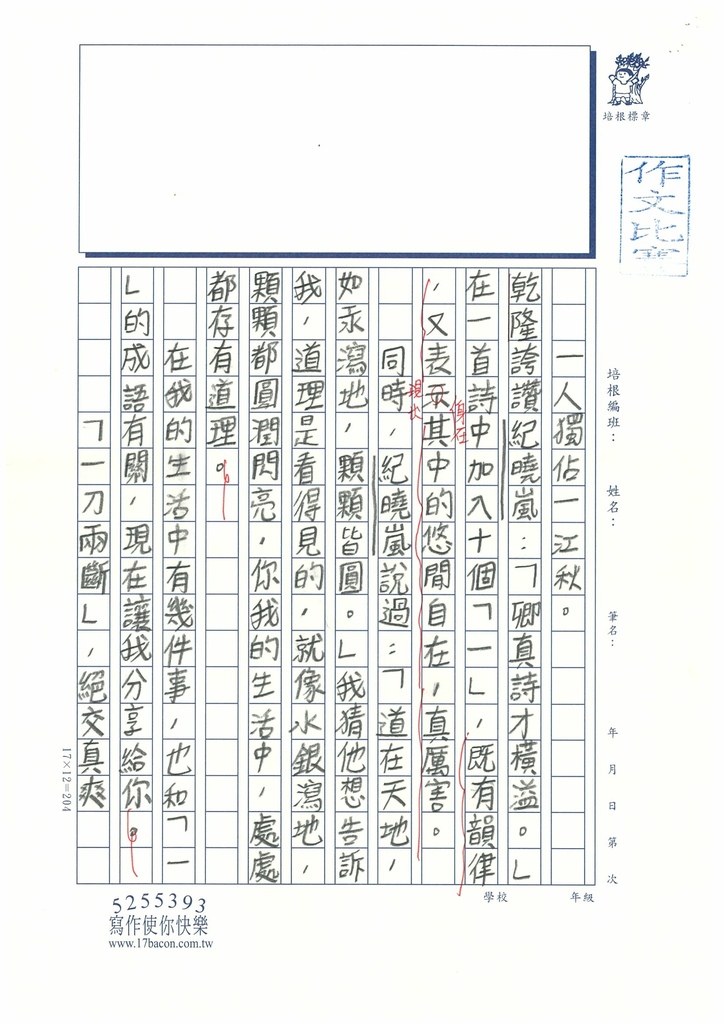 培根標章
作文比賽
培根編班：　姓名：　筆名：　年　月　日　第　次
一人獨佔一江秋。
乾隆誇讚紀曉嵐：「卿真詩才橫溢。」
在一首詩中加入十個「一」，既有韻律
，又表示其中的悠閒自在，真厲害。
現出
身在
同時，紀曉嵐說過：「道在天地，
如汞瀉地，顆顆皆圓。」我猜他想告訴
我，道理是看得見的，就像水銀瀉地，
顆顆都圓潤閃亮，你我的生活中，處處
都存有道理。
在我的生活中有幾件事，也和「一
」的成語有關，現在讓我分享給你。
「一刀兩斷」，絕交真爽
17×12=204
學校　年級
5255393
寫作使你快樂
www.17bacon.com.tw